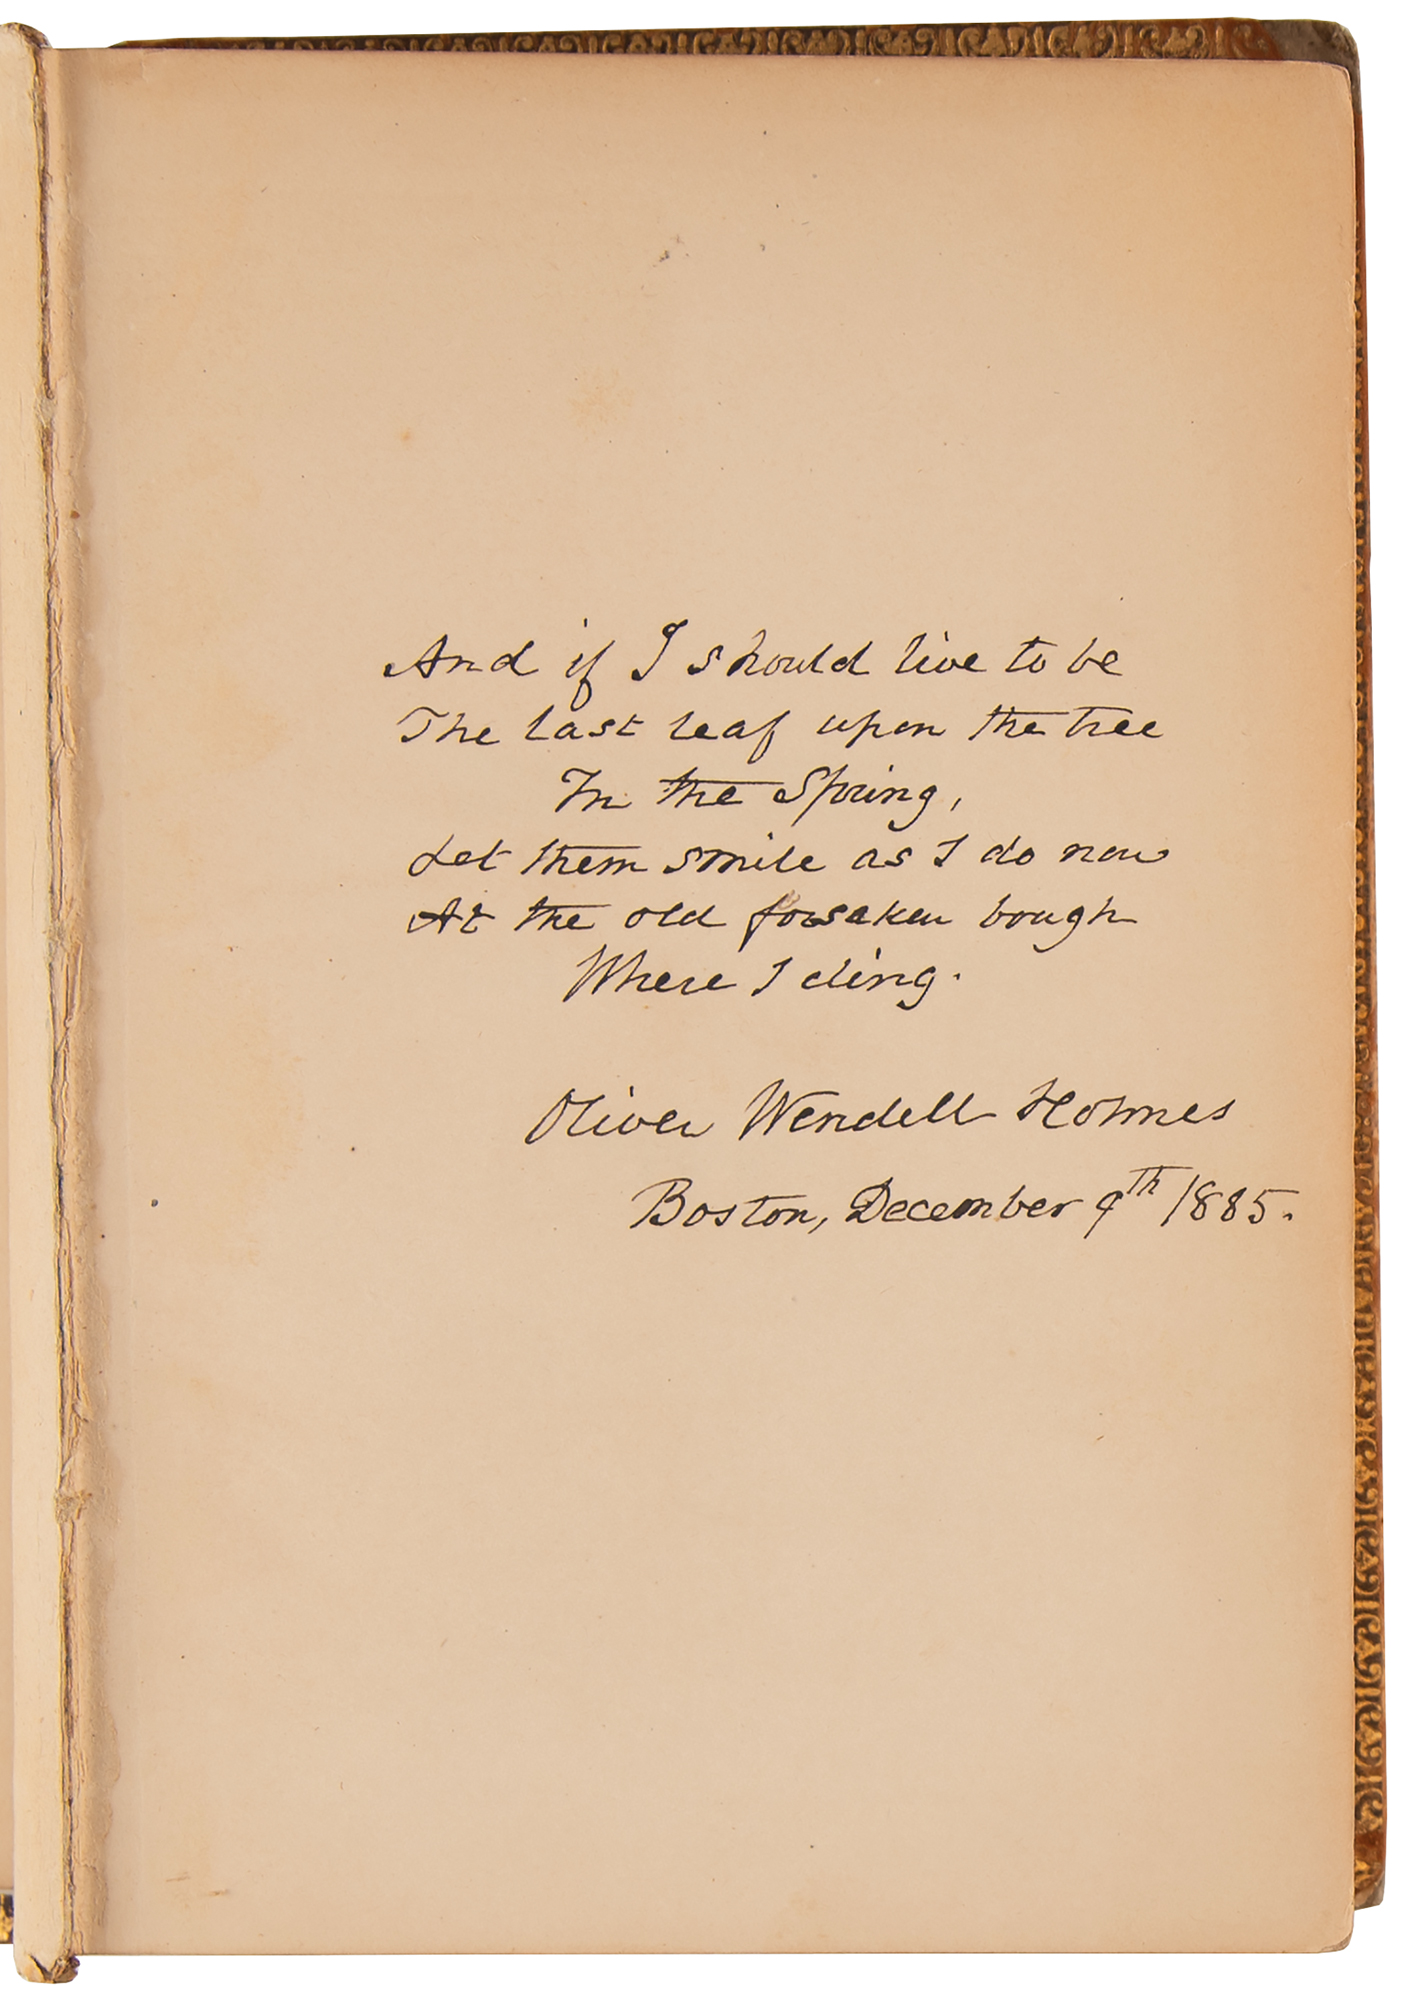 And if I should live to be
The last leaf upon the tree
In the Spring,
Let them smile as I do now
At the old forsaken bough
Where I cling.
Oliver Wendell Holmes
Boston, December 9th 1885.